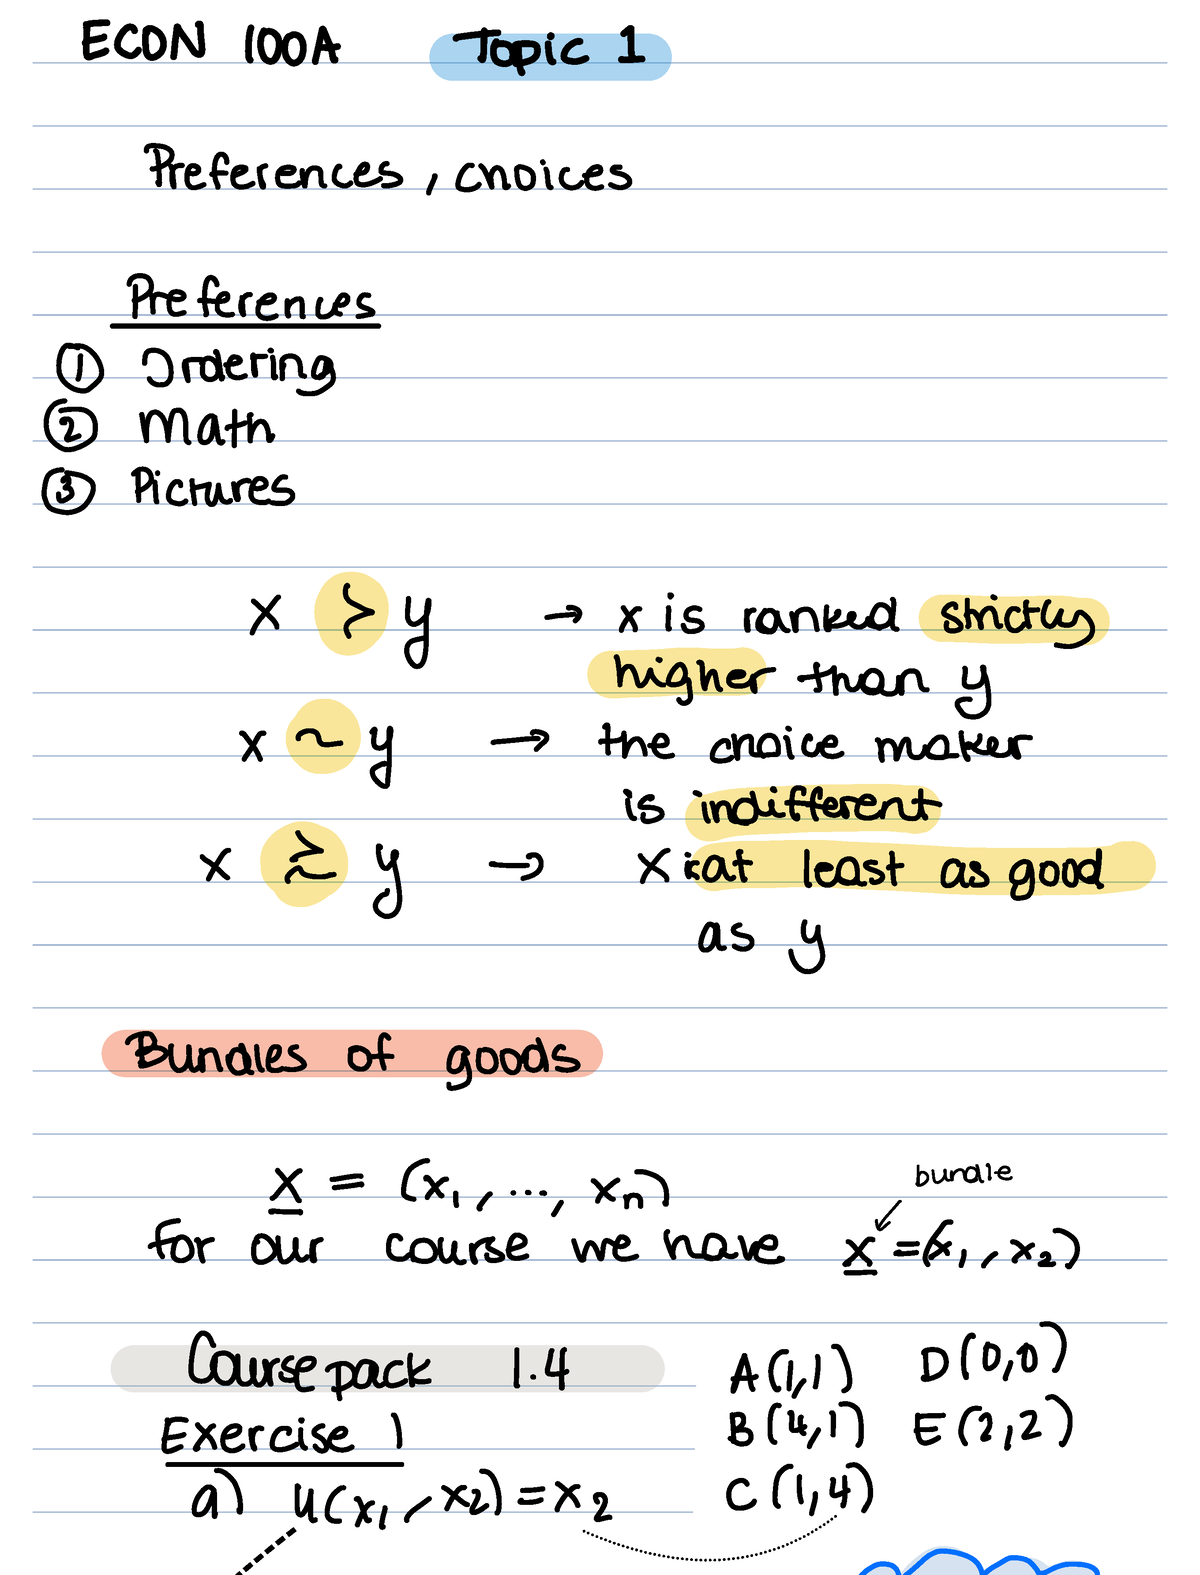 ECON 100A Topic 1
Preferences, choices
Preferences
① Ordering
② Math
③ Pictures
x ≻ y → x is ranked strictly
higher than y
x ~ y → the choice maker
is indifferent
x ≿ y → x is at least as good
as y
Bundles of goods
bundle
x = (x₁, ..., xn)
for our course we have x = (x₁, x₂)
Coursepack 1.4
A(1,1) D(0,0)
Exercise 1
B(4,1) E(2,2)
a) u(x₁, x₂) = x₂
C(1,4)